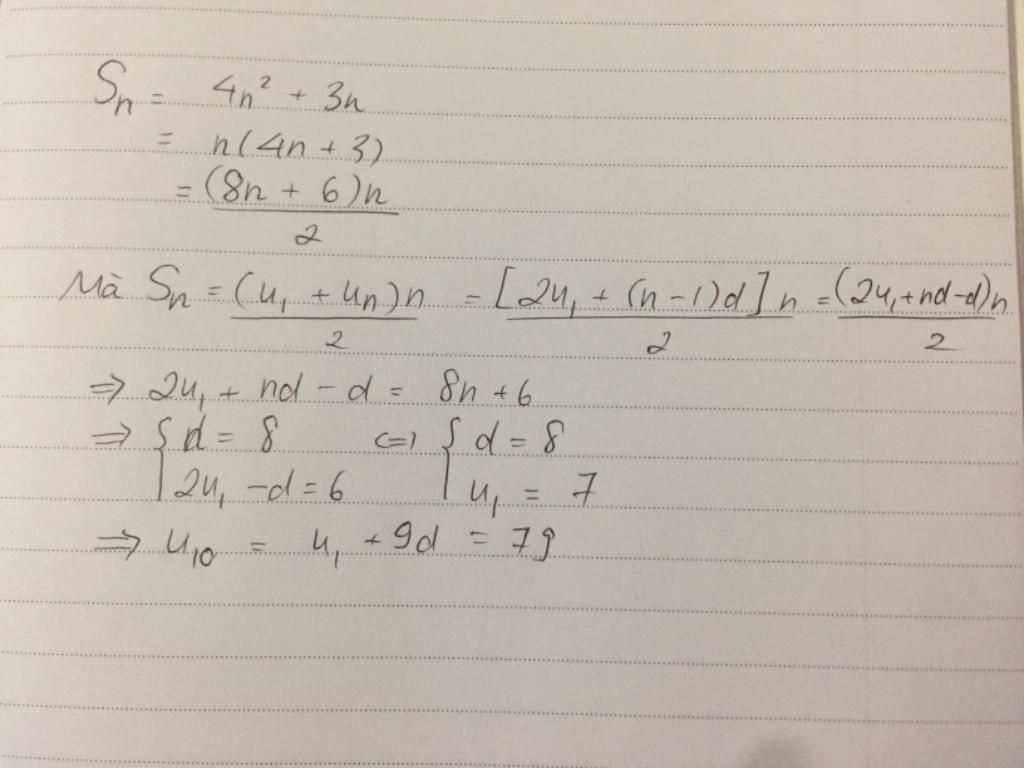 Sₙ = 4n² + 3n
= n(4n + 3)
= (8n + 6)n / 2
Mà Sₙ = (u₁ + uₙ)n / 2 = [2u₁ + (n - 1)d]n / 2 = (2u₁ + nd - d)n / 2
⇒ 2u₁ + nd - d = 8n + 6
⇒ { d = 8 ⇔ { d = 8
2u₁ - d = 6 u₁ = 7
⇒ u₁₀ = u₁ + 9d = 79